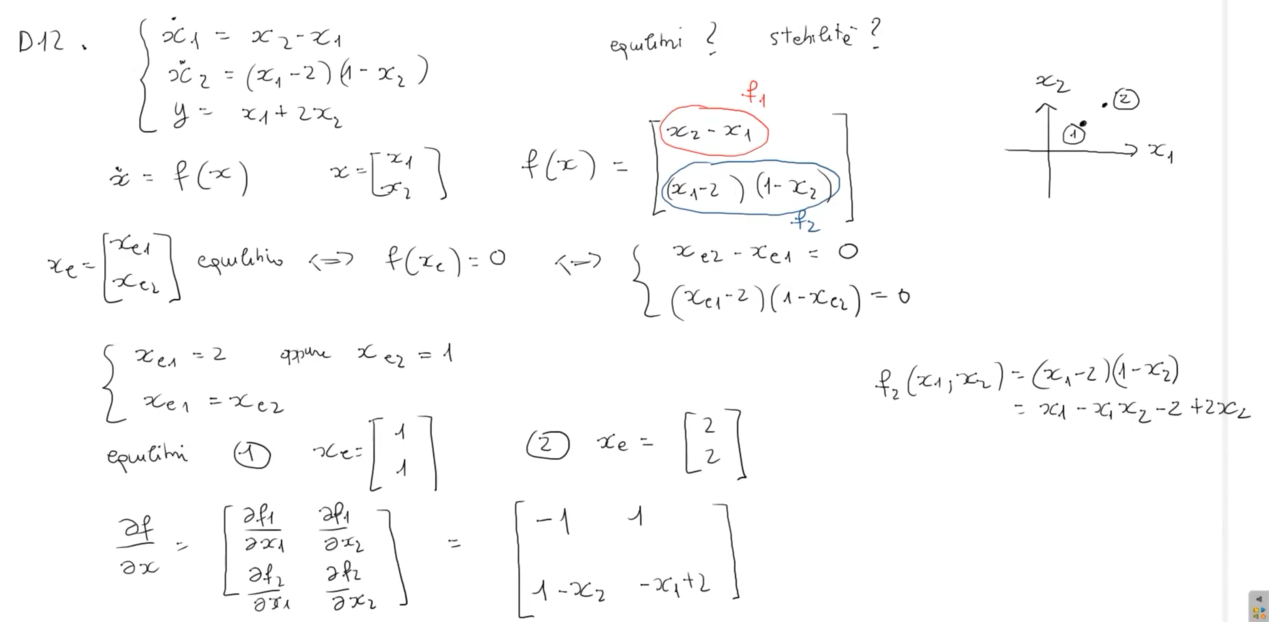 D12. { ẋ1 = x2 - x1
ẋ2 = (x1-2)(1-x2)
y = x1 + 2x2
equilibri ? stabilità ?
ẋ = f(x) x = [x1 x2]
f(x) = [x2 - x1
(x1-2) (1-x2)]
f1
f2
x2
x1
1
2
xe = [xe1 xe2] equilibrio <=> f(xe) = 0 <=> { xe2 - xe1 = 0
(xe1-2)(1-xe2) = 0
{ xe1 = 2 oppure xe2 = 1
xe1 = xe2
f2(x1,x2) = (x1-2)(1-x2)
= x1 - x1x2 - 2 + 2x2
equilibri ① xe = [1 1] ② xe = [2 2]
∂f/∂x = [∂f1/∂x1 ∂f1/∂x2
∂f2/∂x1 ∂f2/∂x2] = [-1 1
1-x2 -x1+2]